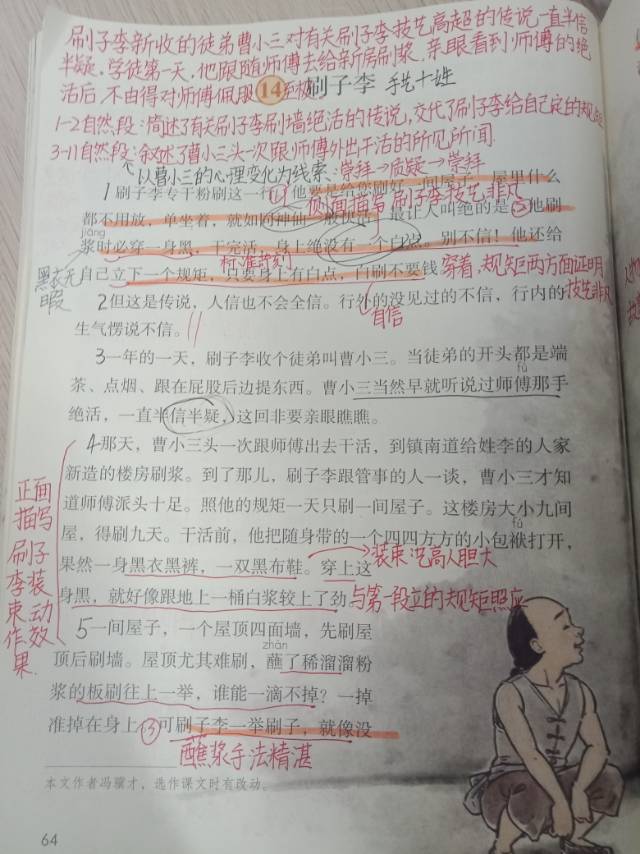 刷子李新收的徒弟曹小三对有关刷子李技艺高超的传说一直半信
半疑，学徒第一天，他跟随师傅去给新房刷浆，亲眼看到师傅的绝
活后，不由得对师傅佩服至极
14 刷子李
1-2自然段：简述了有关刷子李刷墙绝活的传说，交代了刷子李给自己定的规矩
3-11自然段：叙述了曹小三头一次跟师傅外出干活的所见所闻
以曹小三的心理变化为线索：崇拜→质疑→崇拜
1 刷子李专干粉刷这一行。①他要是给您刷好一间屋子，屋里什么
侧面描写 刷子李技艺非凡
都不用放，单坐着，就如同神仙一般快活。最让人叫绝的是②他刷
jiāng
浆时必穿一身黑，干完活，身上绝没有一个白点。别不信！他还给
标准苛刻
自己立下一个规矩，只要身上有白点，白刷不要钱
穿着、规矩两方面证明
技艺非凡
黑衣无
暇
2但这是传说，人信也不会全信。行外的没见过的不信，行内的
生气愣说不信。
自信
3一年的一天，刷子李收个徒弟叫曹小三。当徒弟的开头都是端
fù
茶、点烟、跟在屁股后边提东西。曹小三当然早就听说过师傅那手
绝活，一直半信半疑，这回非要亲眼瞧瞧。
4那天，曹小三头一次跟师傅出去干活，到镇南道给姓李的人家
新造的楼房刷浆。到了那儿，刷子李跟管事的人一谈，曹小三才知
道师傅派头十足。照他的规矩一天只刷一间屋子。这楼房大小九间
fú
屋，得刷九天。干活前，他把随身带的一个四四方方的小包袱打开，
果然一身黑衣黑裤，一双黑布鞋。穿上这
装束：艺高人胆大
身黑，就好像跟地上一桶白浆较上了劲
与第一段立的规矩照应
正面
描写
刷子
李装
束动
作效
果
5一间屋子，一个屋顶四面墙，先刷屋
zhàn
顶后刷墙。屋顶尤其难刷，蘸了稀溜溜粉
浆的板刷往上一举，谁能一滴不掉？一掉
准掉在身上③可刷子李一举刷子，就像没
蘸浆手法精湛
本文作者冯骥才，选作课文时有改动。
64